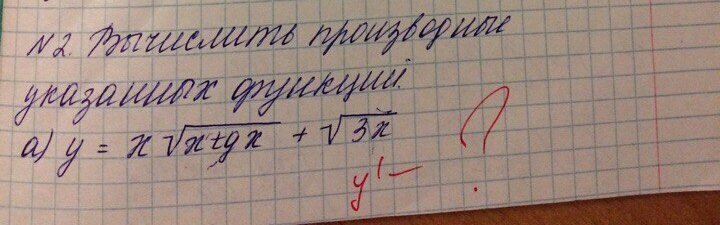 N2. Вычислить производные
указанных функций.
а) y = x √(x tg x) + √(3x)
y' – ?